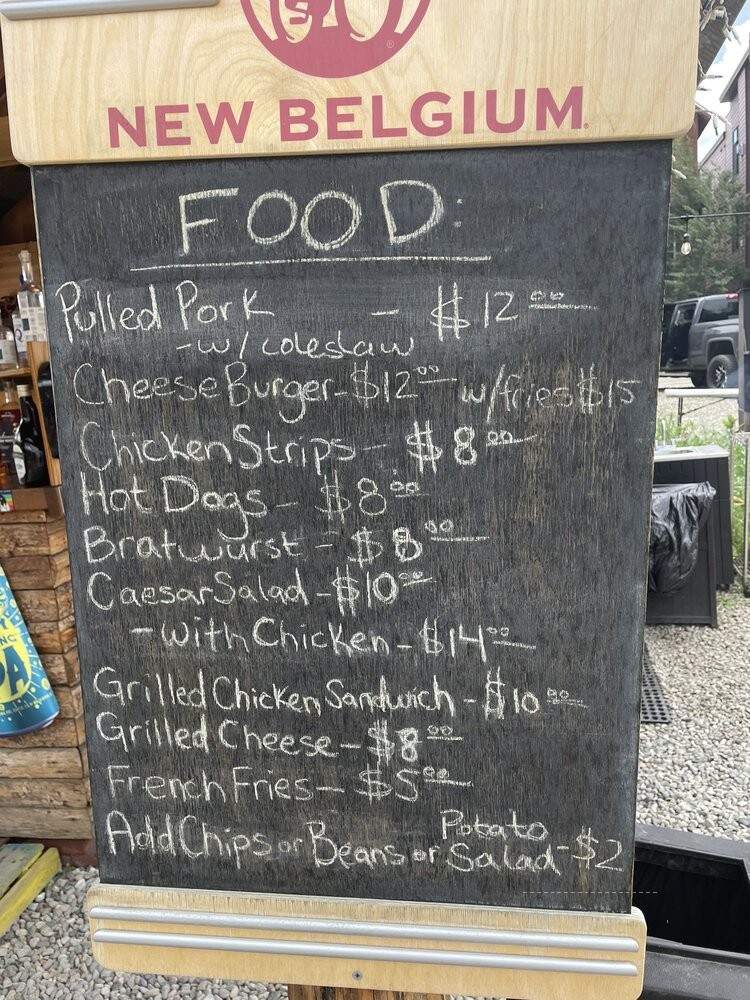 NEW BELGIUM
FOOD:
Pulled Pork - $12.00
-w/ coleslaw
Cheese Burger - $12.00 w/fries $15
Chicken Strips - $8.00
Hot Dogs - $8.00
Bratwurst - $8.00
Caesar Salad - $10.00
- with Chicken - $14.00
Grilled Chicken Sandwich - $10.00
Grilled Cheese - $8.00
French Fries - $5.00
Add Chips or Beans or Potato Salad - $2